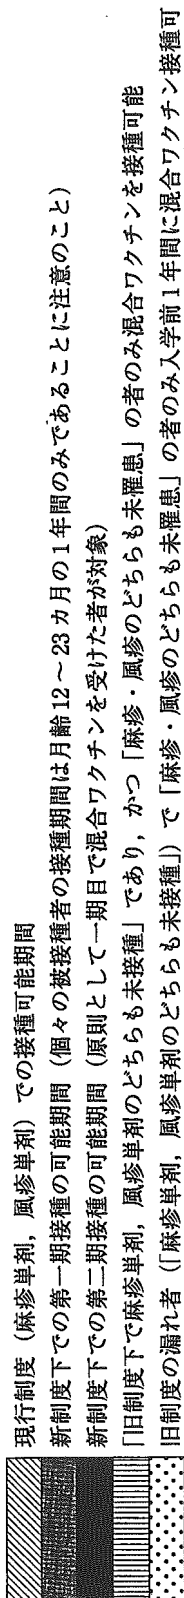 現行制度（麻疹単剤，風疹単剤）での接種可能期間
新制度下での第一期接種の可能期間（個々の被接種者の接種期間は月齢12～23カ月の1年間のみであることに注意のこと）
新制度下での第二期接種の可能期間（原則として一期目で混合ワクチンを受けた者が対象）
「旧制度下で麻疹単剤，風疹単剤のどちらも未接種」であり，かつ「麻疹・風疹のどちらも未罹患」の者のみ混合ワクチンを接種可能
旧制度の漏れ者（「麻疹単剤，風疹単剤のどちらも未接種」）で「麻疹・風疹のどちらも未罹患」の者のみ入学前1年間に混合ワクチン接種可